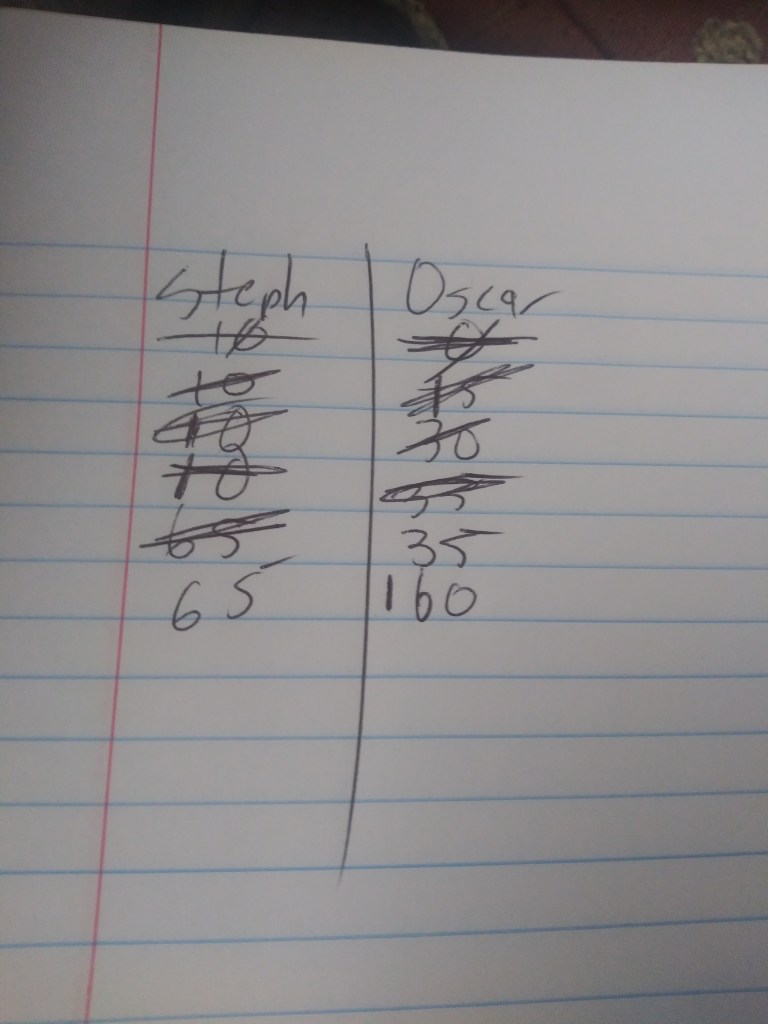 Steph Oscar
10 0
10 15
10 30
10 35
65 35
65 160